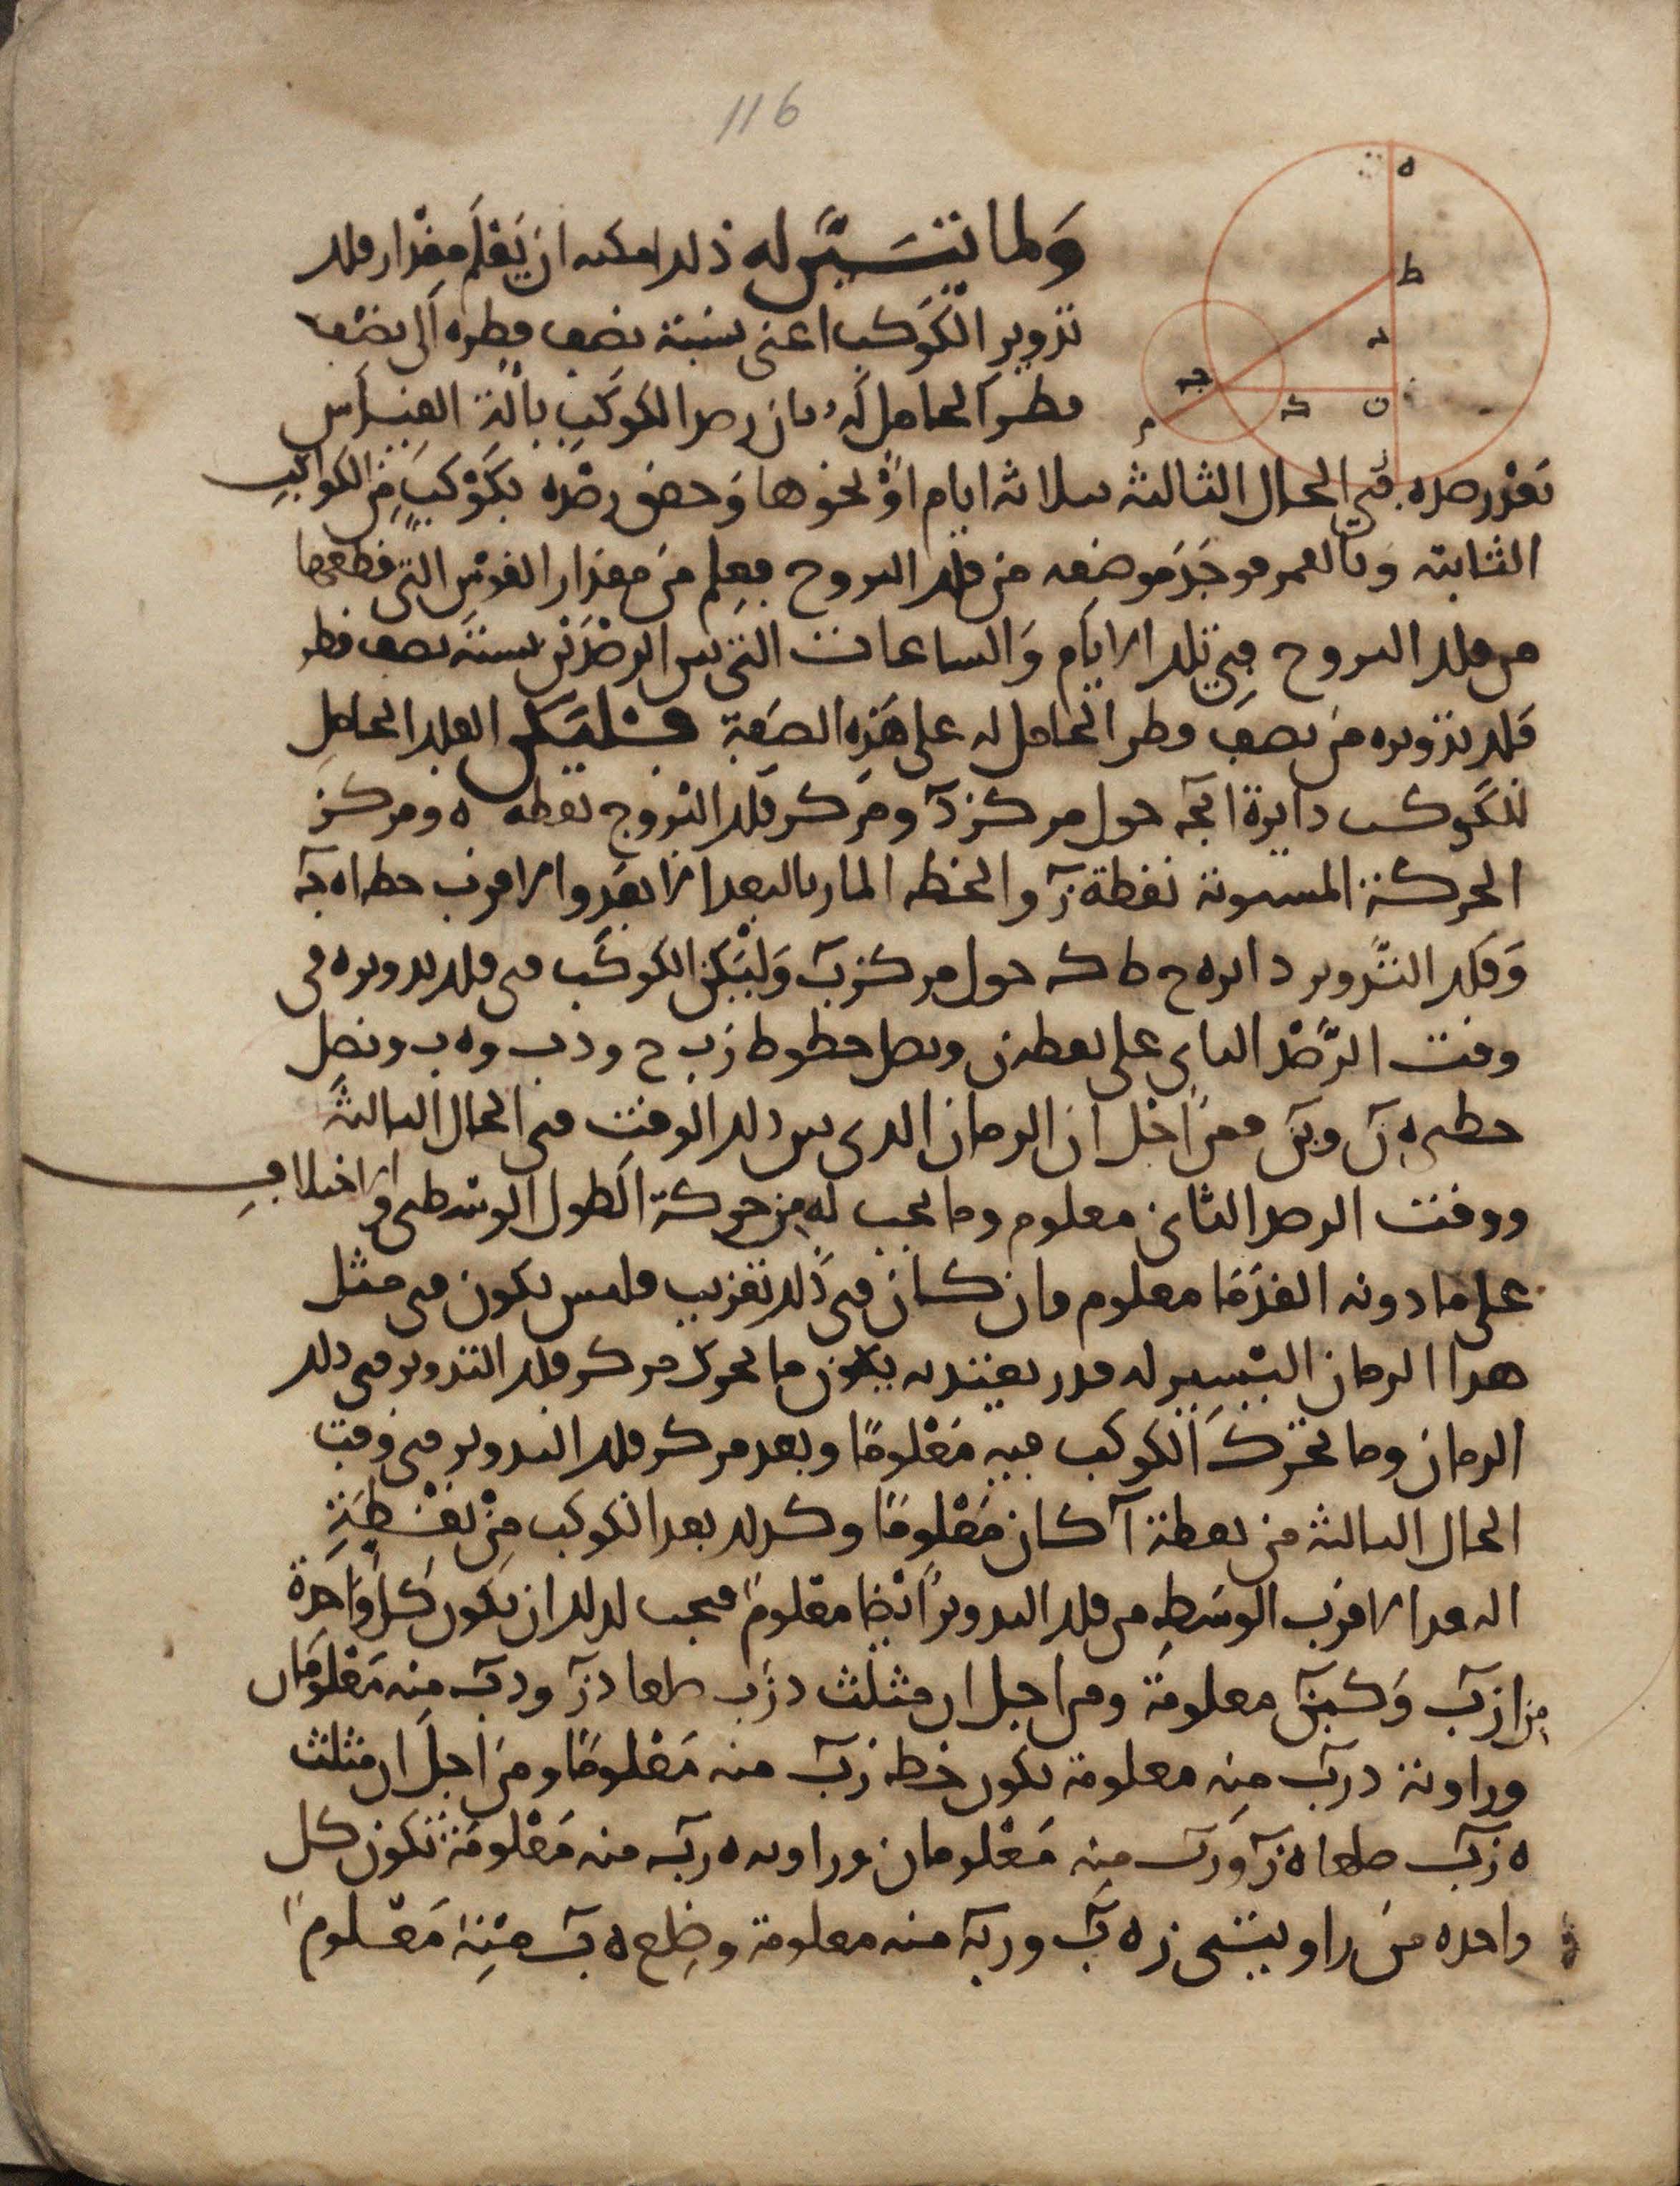 116
ه
ط
د
ن
ك
جه
م
ولما تيسر له ذلك امكنه ان يعلم مقدار فلك
تدوير الكوكب اعنى نسبة نصف قطره الى نصف
قطر الحامل له فان رصد الكوكب بالة القياس
بعد رصده فى الحال الثالثة بثلاثة ايام او نحوها وحقق رصده بكوكب من الكواكب
الثابتة وبالقمر فوجد موضعه من فلك البروج فعلم من مقدار القوس التى قطعها
من فلك البروج فى تلك الايام والساعات التى بين الرصدين نسبة نصف قطر
فلك تدويره من نصف قطر الحامل له على هذه الصفة فليكن الفلك الحامل
للكوكب دايرة ابجه حول مركز د ومركز فلك البروج نقطة ه ومركز
الحركة المستوية نقطة ز والخط المار بالبعد الابعد والاقرب خط اه جه
وفلك التدوير دايره ح ط كه حول مركز ب وليكن الكوكب فى فلك تدويره فى
وقت الرصد الثانى على نقطة ن ونصل خطوط زب ح ودب وه ب ونصل
خطى ه ن وبن فمن اجل ان الزمان الذى بين ذلك الوقت فى الحال الثالثة
ووقت الرصد الثانى معلوم وما يجب له من حركة الطول الوسطى والاختلاف
على ما دونه القدما معلوم وان كان فى ذلك تقريب فليس يكون فى مثل
هذا الزمان اليسير له قدر يعتد به يكون ما تحرك مركز فلك التدوير فى ذلك
الزمان وما تحرك الكوكب فيه معلوما وبعد مركز فلك التدوير فى وقت
الحال الثالثة من نقطة آ كان معلوما وكذلك بعد الكوكب من نقطة
البعد الاقرب الوسط من فلك التدوير ايضا معلوم فيجب لذلك ان تكون كل واحدة
من ازب وكبن معلومة ومن اجل ان مثلث دزب ضلعا دز ودب منه معلومان
وزاوية دزب منه معلومة يكون خط زب منه معلوما ومن اجل ان مثلث
ه زب ضلعا ه ز وزب منه معلومان وزاويه ه زب منه معلومة تكون كل
واحده من زاويتى زه ب وزبه منه معلومة وضلع ه ب منه معلوم